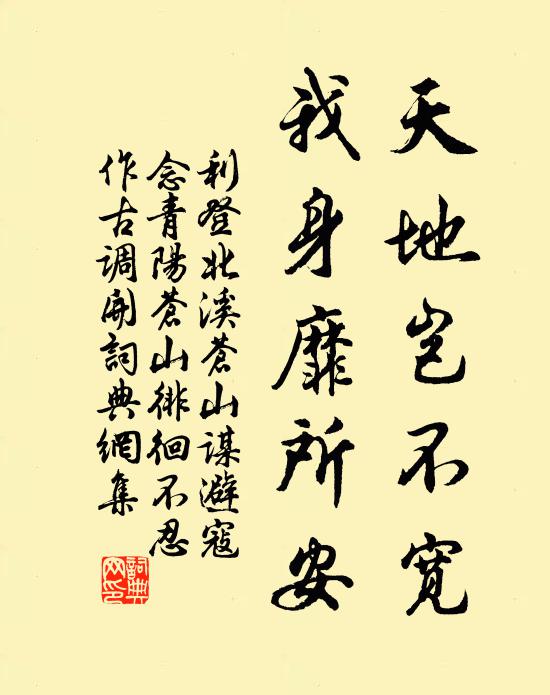 天地岂不宽
我身靡所安
利登北溪蒼山謀避寇
念青陽蒼山徘徊不忍
作古調開詞典網集
詞典网印